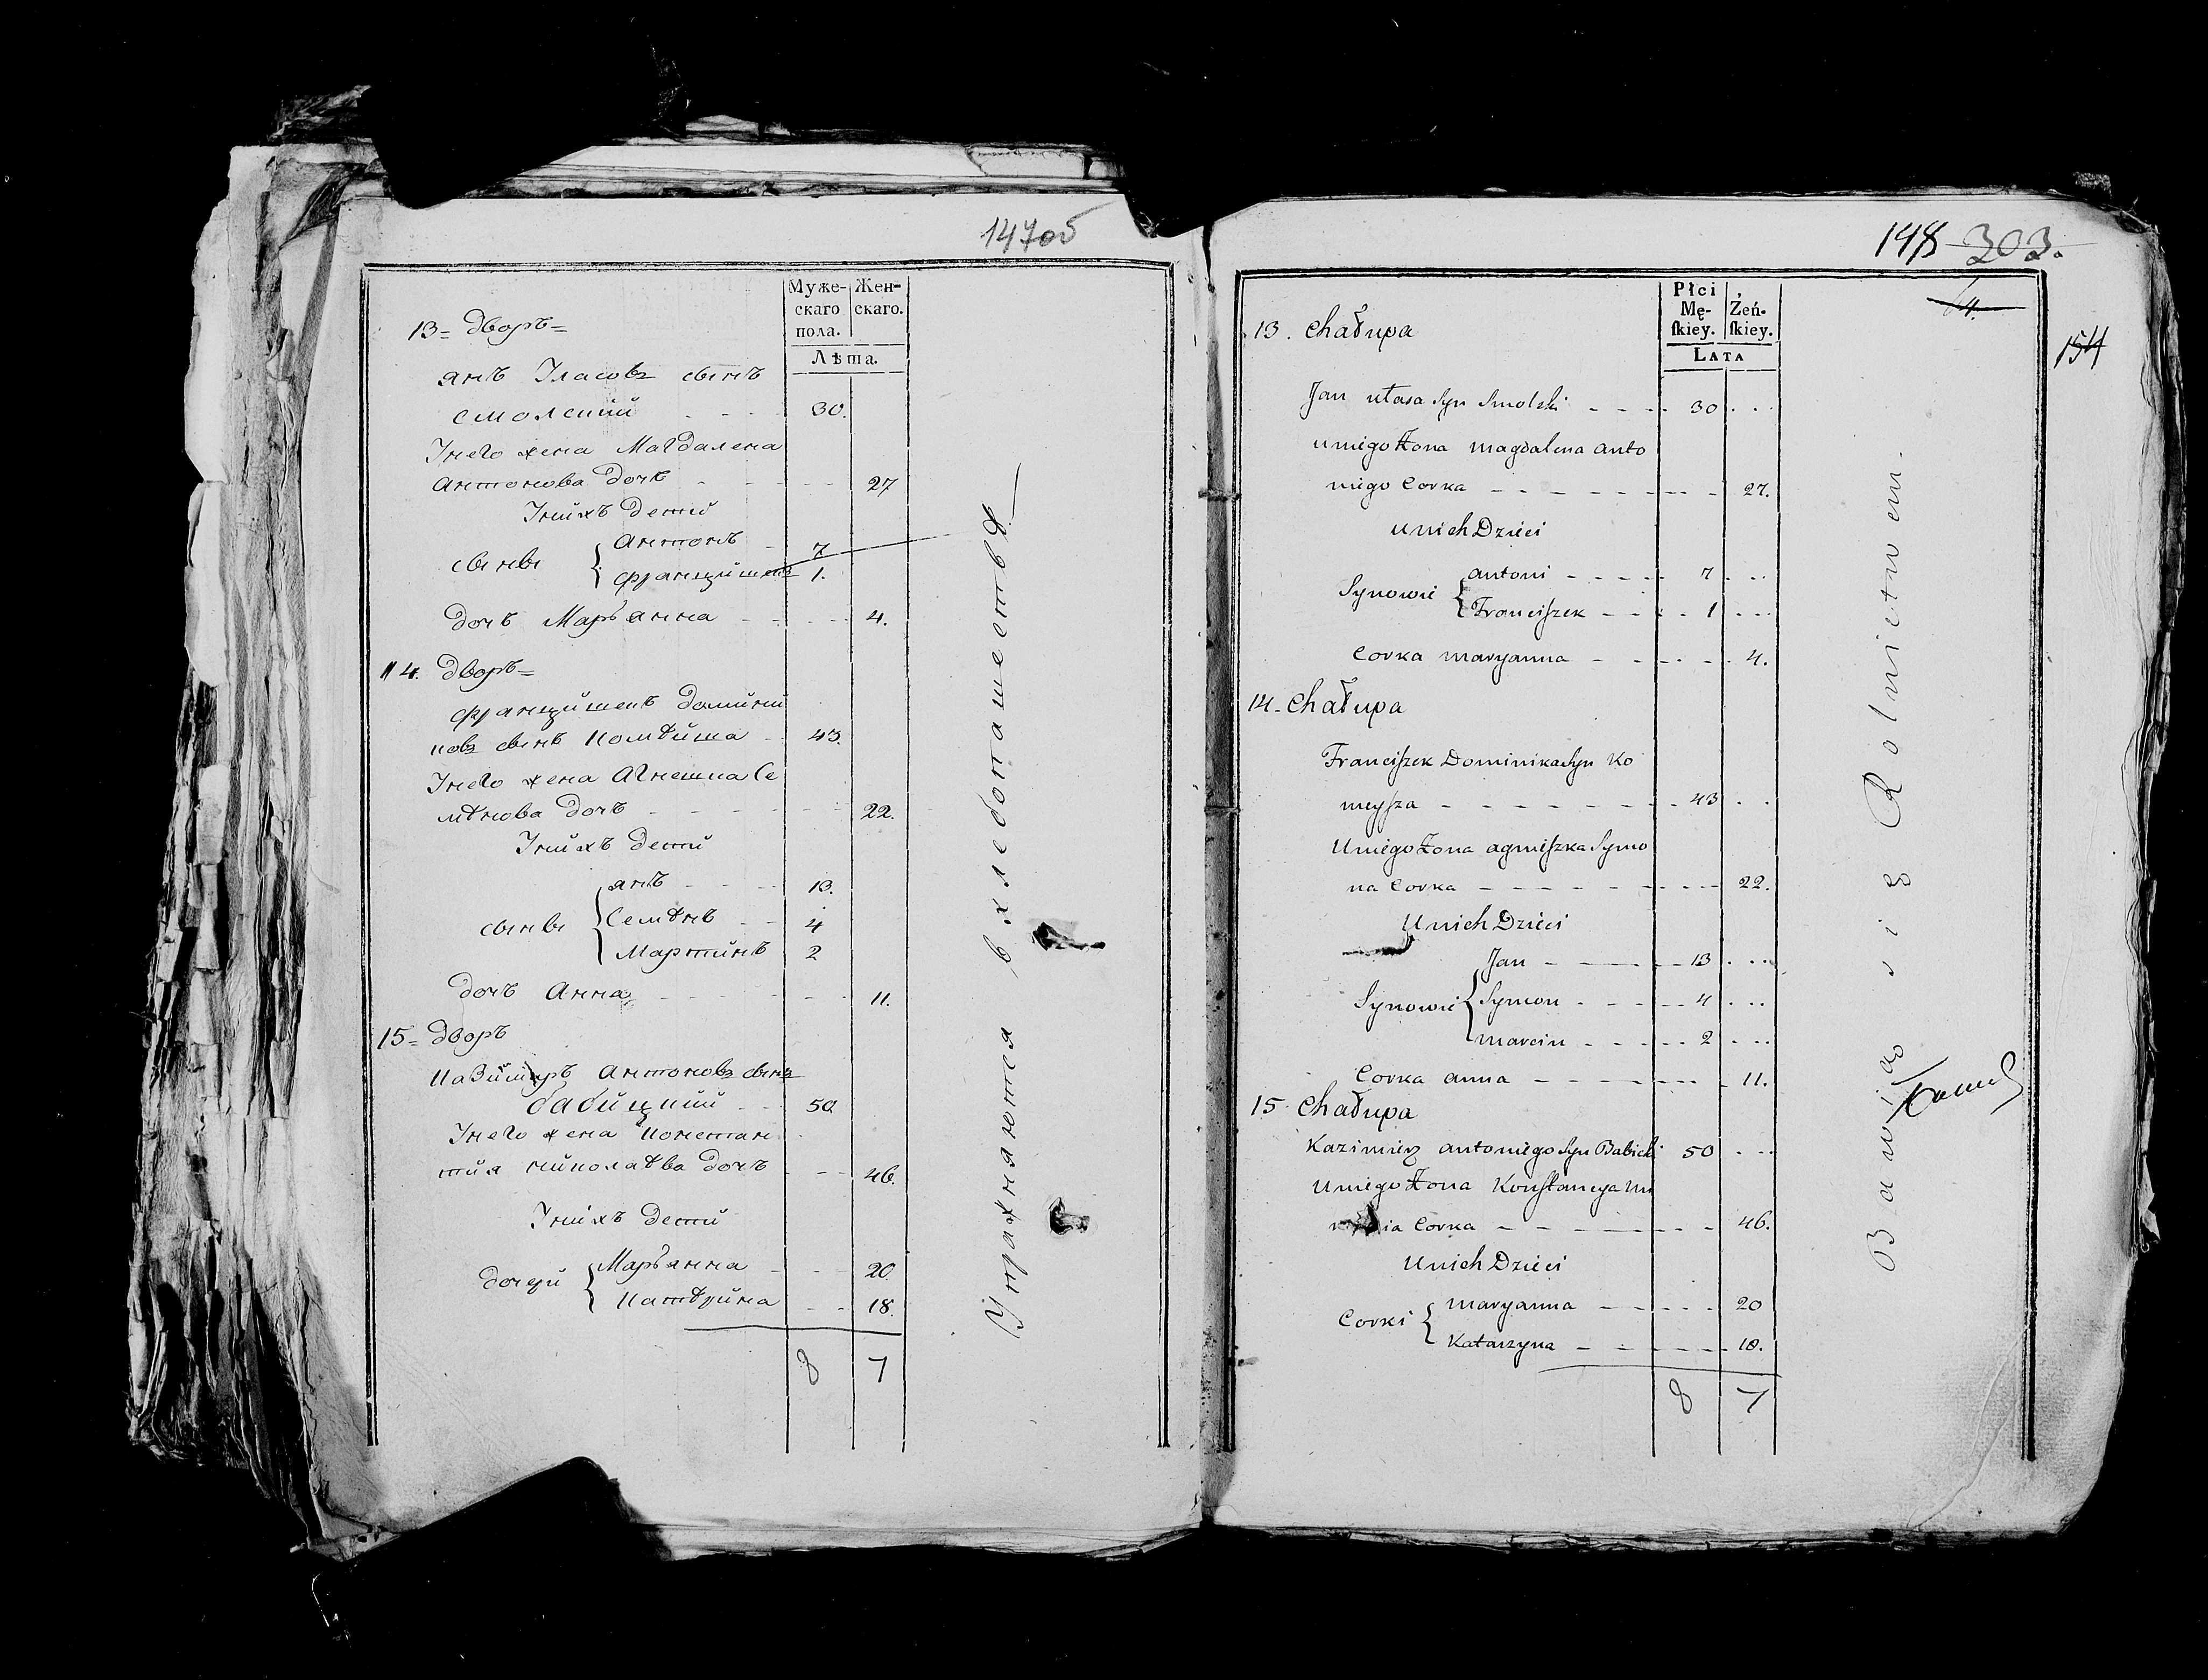 147об
Муже-
скаго
пола.
Жен-
скаго.
Лѣта.
13= Дворъ=
янъ Уласовъ сынъ
смолский 30.
Унего жена Магдалена
антонова дочь 27
Унихъ дети
сыны { антонъ 7
францишекъ 1.
дочь Марьянна 4.
14. Дворъ=
францишекъ домини
ковъ сынъ Комѣйша 43.
Унего жена Агнешка Се
мѣнова дочь 22.
Унихъ дети
янъ 13.
сыны { Семѣнъ 4
Мартинъ 2
дочь Анна 11.
15= Дворъ
Казимиръ антоновъ сынъ
бабицкий 50
Унего жена констан
тия николаѣва дочь 46.
Унихъ дети
дочери { Марьянна 20.
Катѣрина 18.
8 7
Упражняются в хлебопашествѣ.
148 303.
64.
154
Płci
Mę-
ſkiey.
Żeń-
ſkiey.
Lata
13. Chałupa
Jan ułasa Syn Smolski 30
uniego Żona magdalena anto
niego Corka 27.
unich Dzieci
Synowie { antoni 7
Franciſzek 1
Corka maryanna 4.
14. Chałupa
Franciſzek Dominika Syn Ko
meyſza 43
Uniego Żona agnieſzka Symo
na Corka 22.
Unich Dzieci
Jan 13
Synowie { Symon 4
marcin 2
Corka anna 11.
15 Chałupa
Kazimierz antoniego Syn Babicki 50
Uniego Żona Konſtancya
Corka 46.
Unich Dzieci
Corki { maryanna 20
Katarzyna 18.
8 7
Bawią się Rolnictwem.